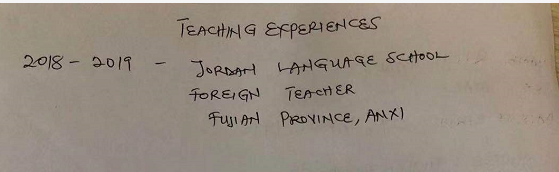 TEACHING EXPERIENCES
2018 - 2019 - JORDAN LANGUAGE SCHOOL
FOREIGN TEACHER
FUJIAN PROVINCE, ANXI